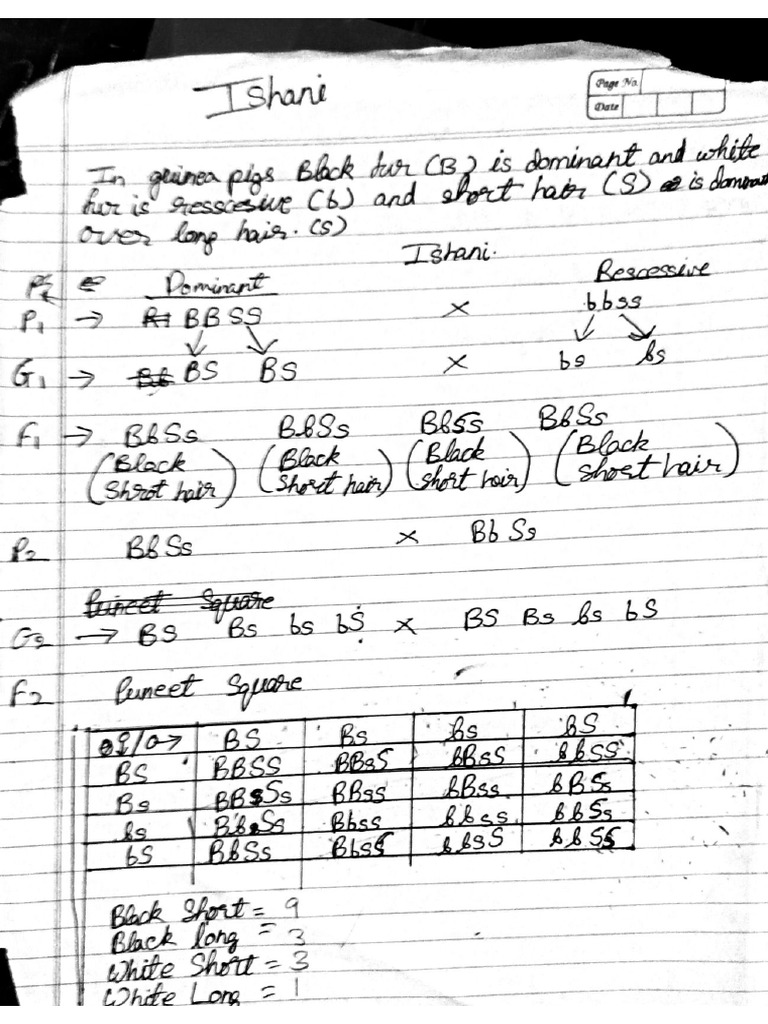 Ishani
Page No.
Date
In guinea pigs Black fur (B) is dominant and white
fur is resscesive (b) and short hair (S) is dominant
over long hair. (s)
Ishani.
Dominant Rescessive
P1 → BBSS × bbss
G1 → BS BS × bs bs
F1 → BbSs BbSs BbSs BbSs
(Black (Black (Black (Black
Shrot hair) Short hair) Short hair) Short hair)
P2 BbSs × BbSs
Puneet Square
G2 → BS Bs bs bS × BS Bs bs bS
F2 Puneet Square
BS Bs bs bS
BS BBSS BBsS
Bs BBSs BBss bBss bBSs
bs BbSs Bbss bbss bbSs
bS BbSS BbsS bbsS bbSS
Black Short = 9
Black long = 3
White Short = 3
White Long = 1